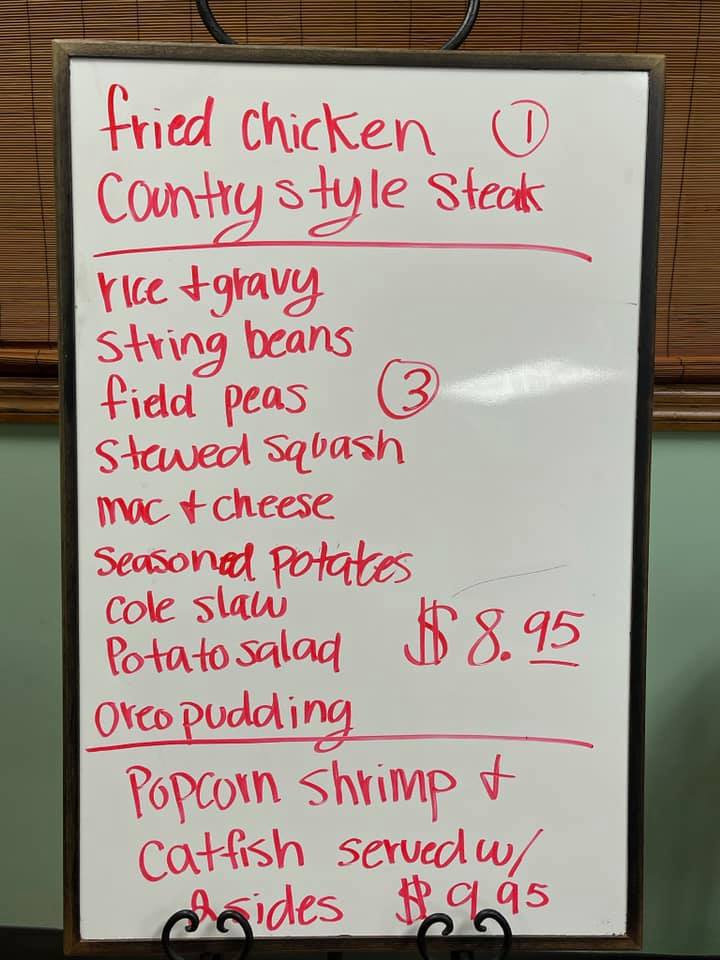 fried chicken ①
Country style Steak
rice + gravy
string beans
field peas ③
Stewed squash
mac + cheese
Seasoned potatoes
cole slaw
Potato salad
$8.95
Oreo pudding
Popcorn shrimp +
Catfish served w/
sides $9.95